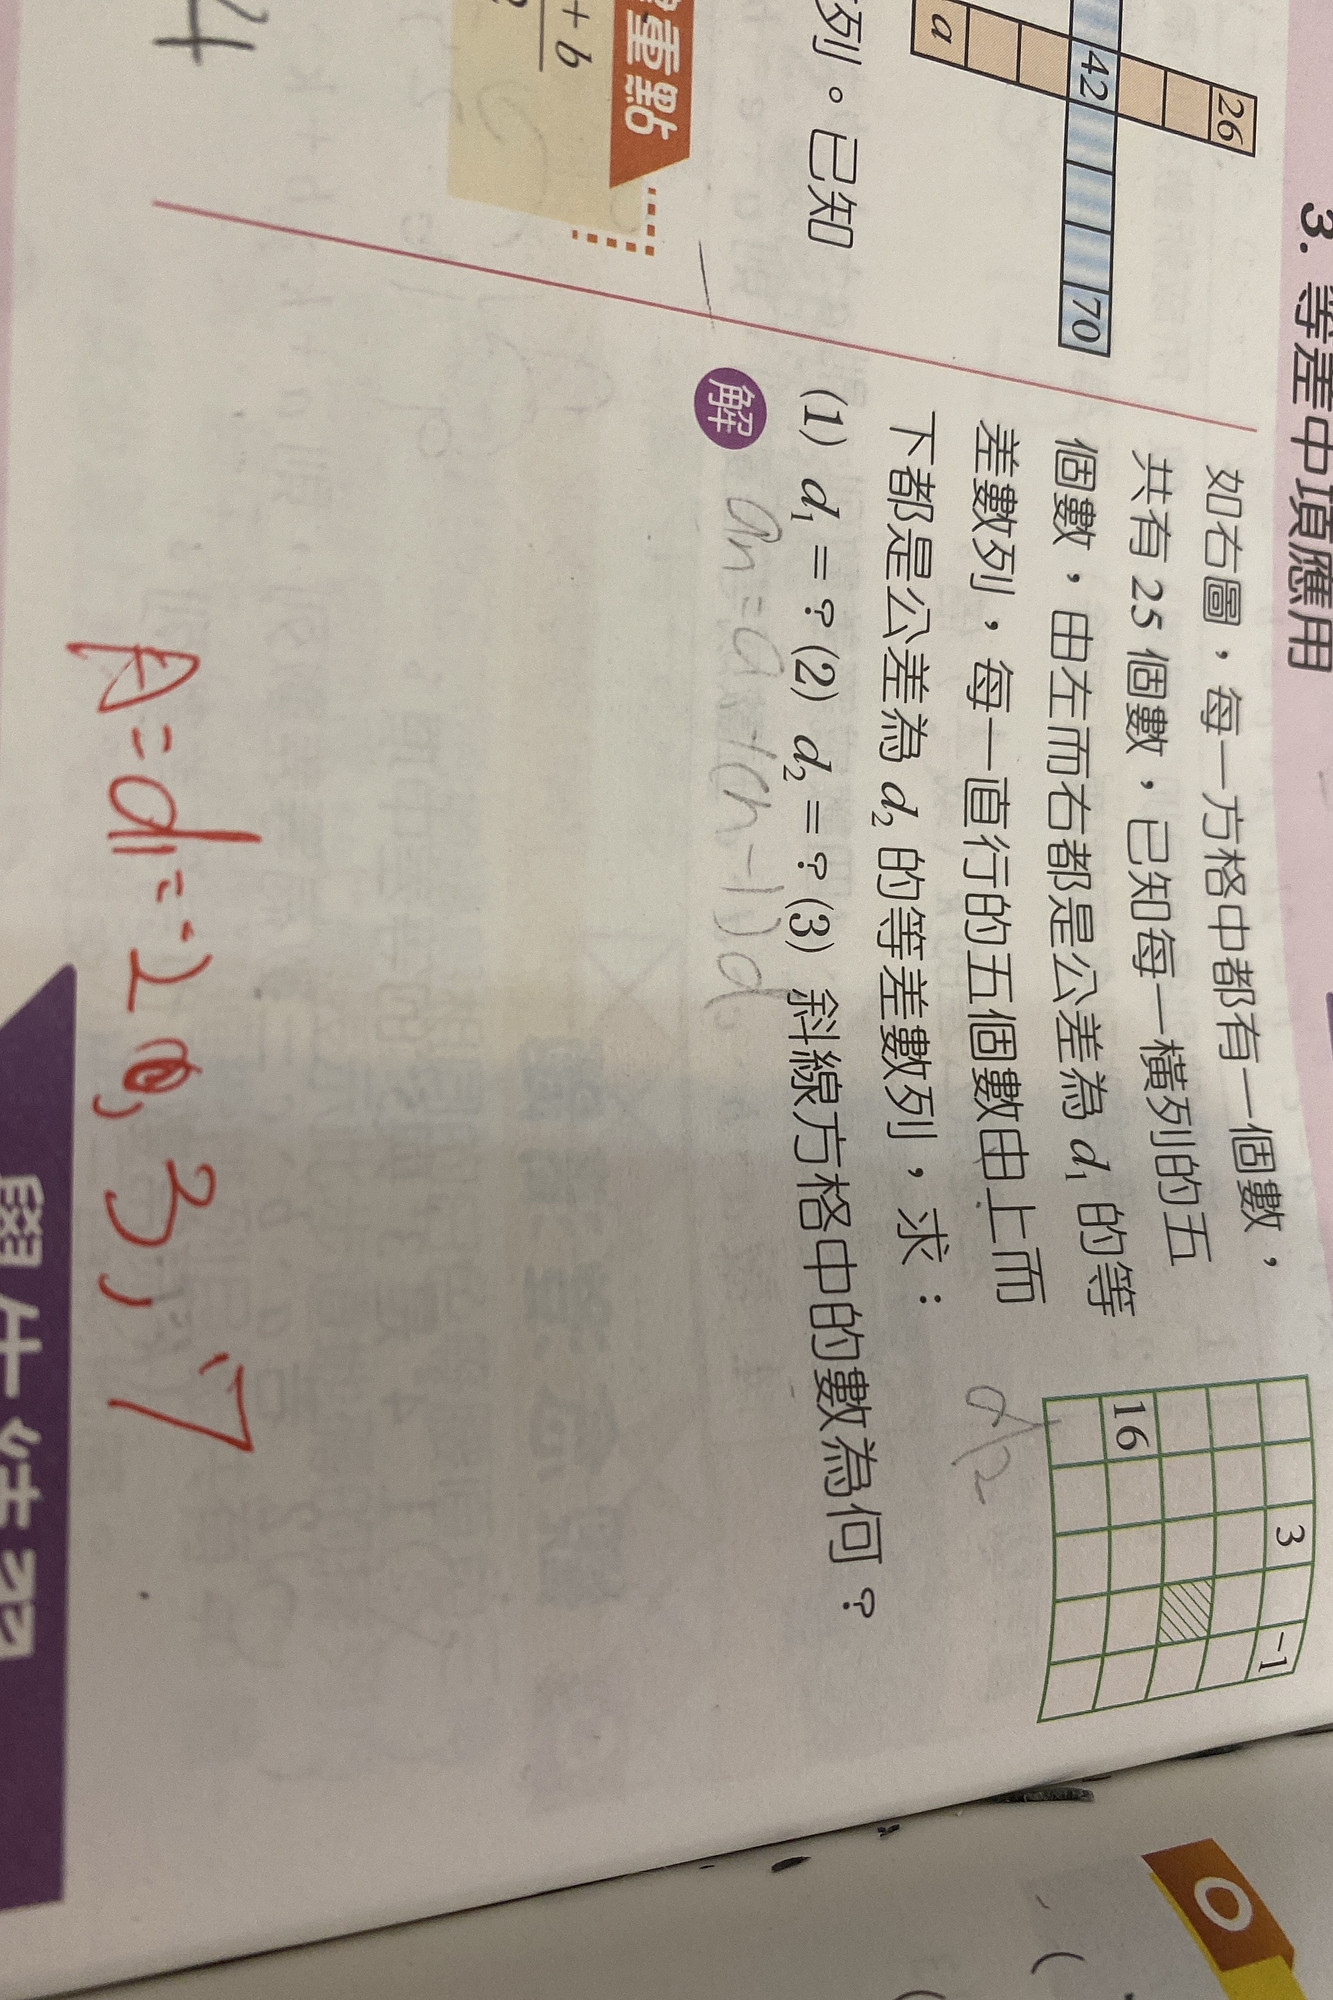 3. 等差中項應用
26
42
70
a
列。已知
重點
+ b
4
如右圖，每一方格中都有一個數，
共有 25 個數，已知每一橫列的五
個數，由左而右都是公差為 d₁ 的等
差數列，每一直行的五個數由上而
下都是公差為 d₂ 的等差數列，求：
(1) d₁ = ？(2) d₂ = ？(3) 斜線方格中的數為何？
3
-1
16
解
A = d₁ = -2, 3, 7
O
(
(